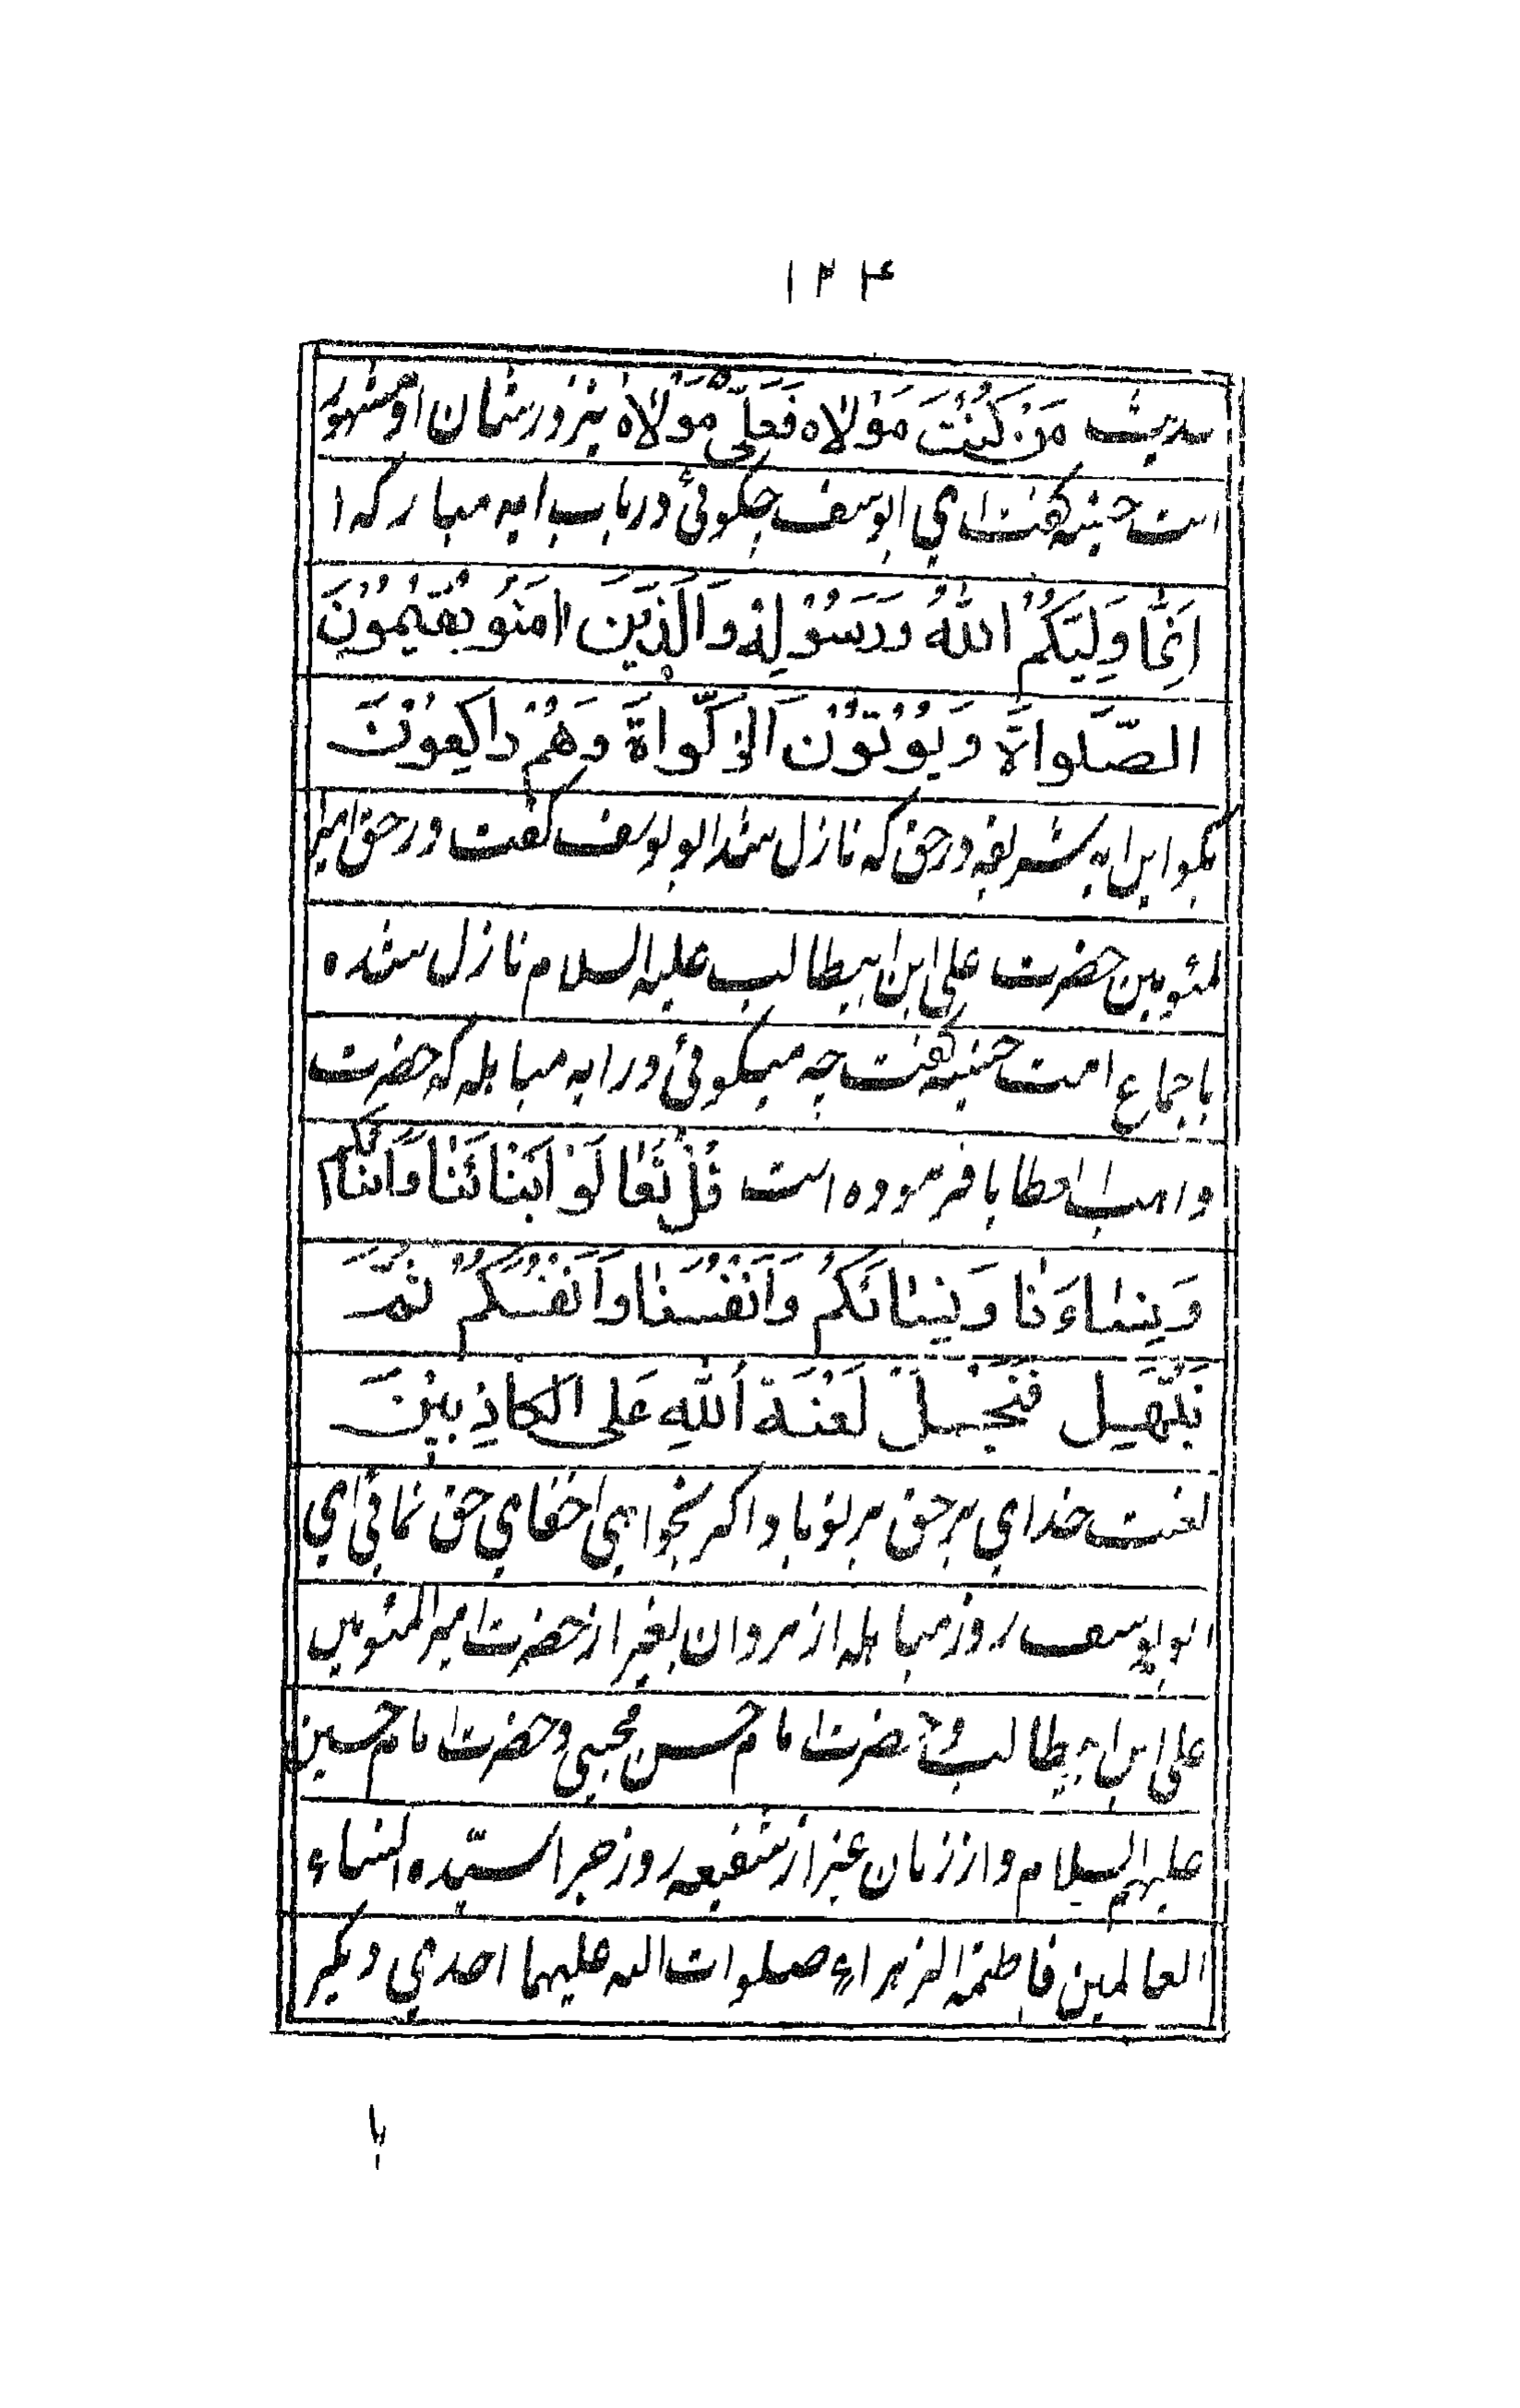 ۱۲۴
حدیث مَنْ کُنْتُ مَوْلاه فَعَلِیٌّ مَوْلاهُ نیز در شان او مشهور
است حسنیه گفت ای ابویوسف چگوئی در باب ایه مبارکه ا
اِنَّمٰا وَلِیَکُمُ اللّٰهُ وَرَسُوْلِهُ وَالَّذِیَنَ امَنُو یُقیٖمُوْنَ
الصَّلَواةَ وَیُوْتُوْنَ الزَّکَّواةَ وَهُمْ رٰاکِعُوْنَ
بگو این ایه شریفه در حق که نازل شد ابو یوسف گفت در حق امیرا
لمئومین حضرت علی ابن ابیطالب علیه السلام نازل شده
باجماع امت حسنیه گفت چه میگوئی در ایه مباهله که حضرت
واهب العطایا فرموده است قُلْ تَعٰالَوْ اَبْنٰائَنٰا وَاَبْنٰائکُمْ
وَنِسٰاءَنٰا وَنِسٰائَکُمْ وَاَنْفُسَنٰا وَاَنْفُسُکُمْ ثُمَّ
نَبْتَهِیل فَنَجْعَلْ لَعْنَةَ اللّٰهِ عَلی الکاذِبیْنَ
لعنت خدای بر حق بر تو باد اگر بخواهی اخفای حق نمائی ای
ابو یوسف روز مباهله از مردان بغیر از حضرت امیر المئومین
علی ابن ابیطالب و حضرت امام حسن مجتبی و حضرت امام حسین
علیهم السلام و از زنان غیر از شفیعه روز جزا سیّده النساء
العالمین فاطمة الزهراء صلوات الله علیهما احدی دیگر
با